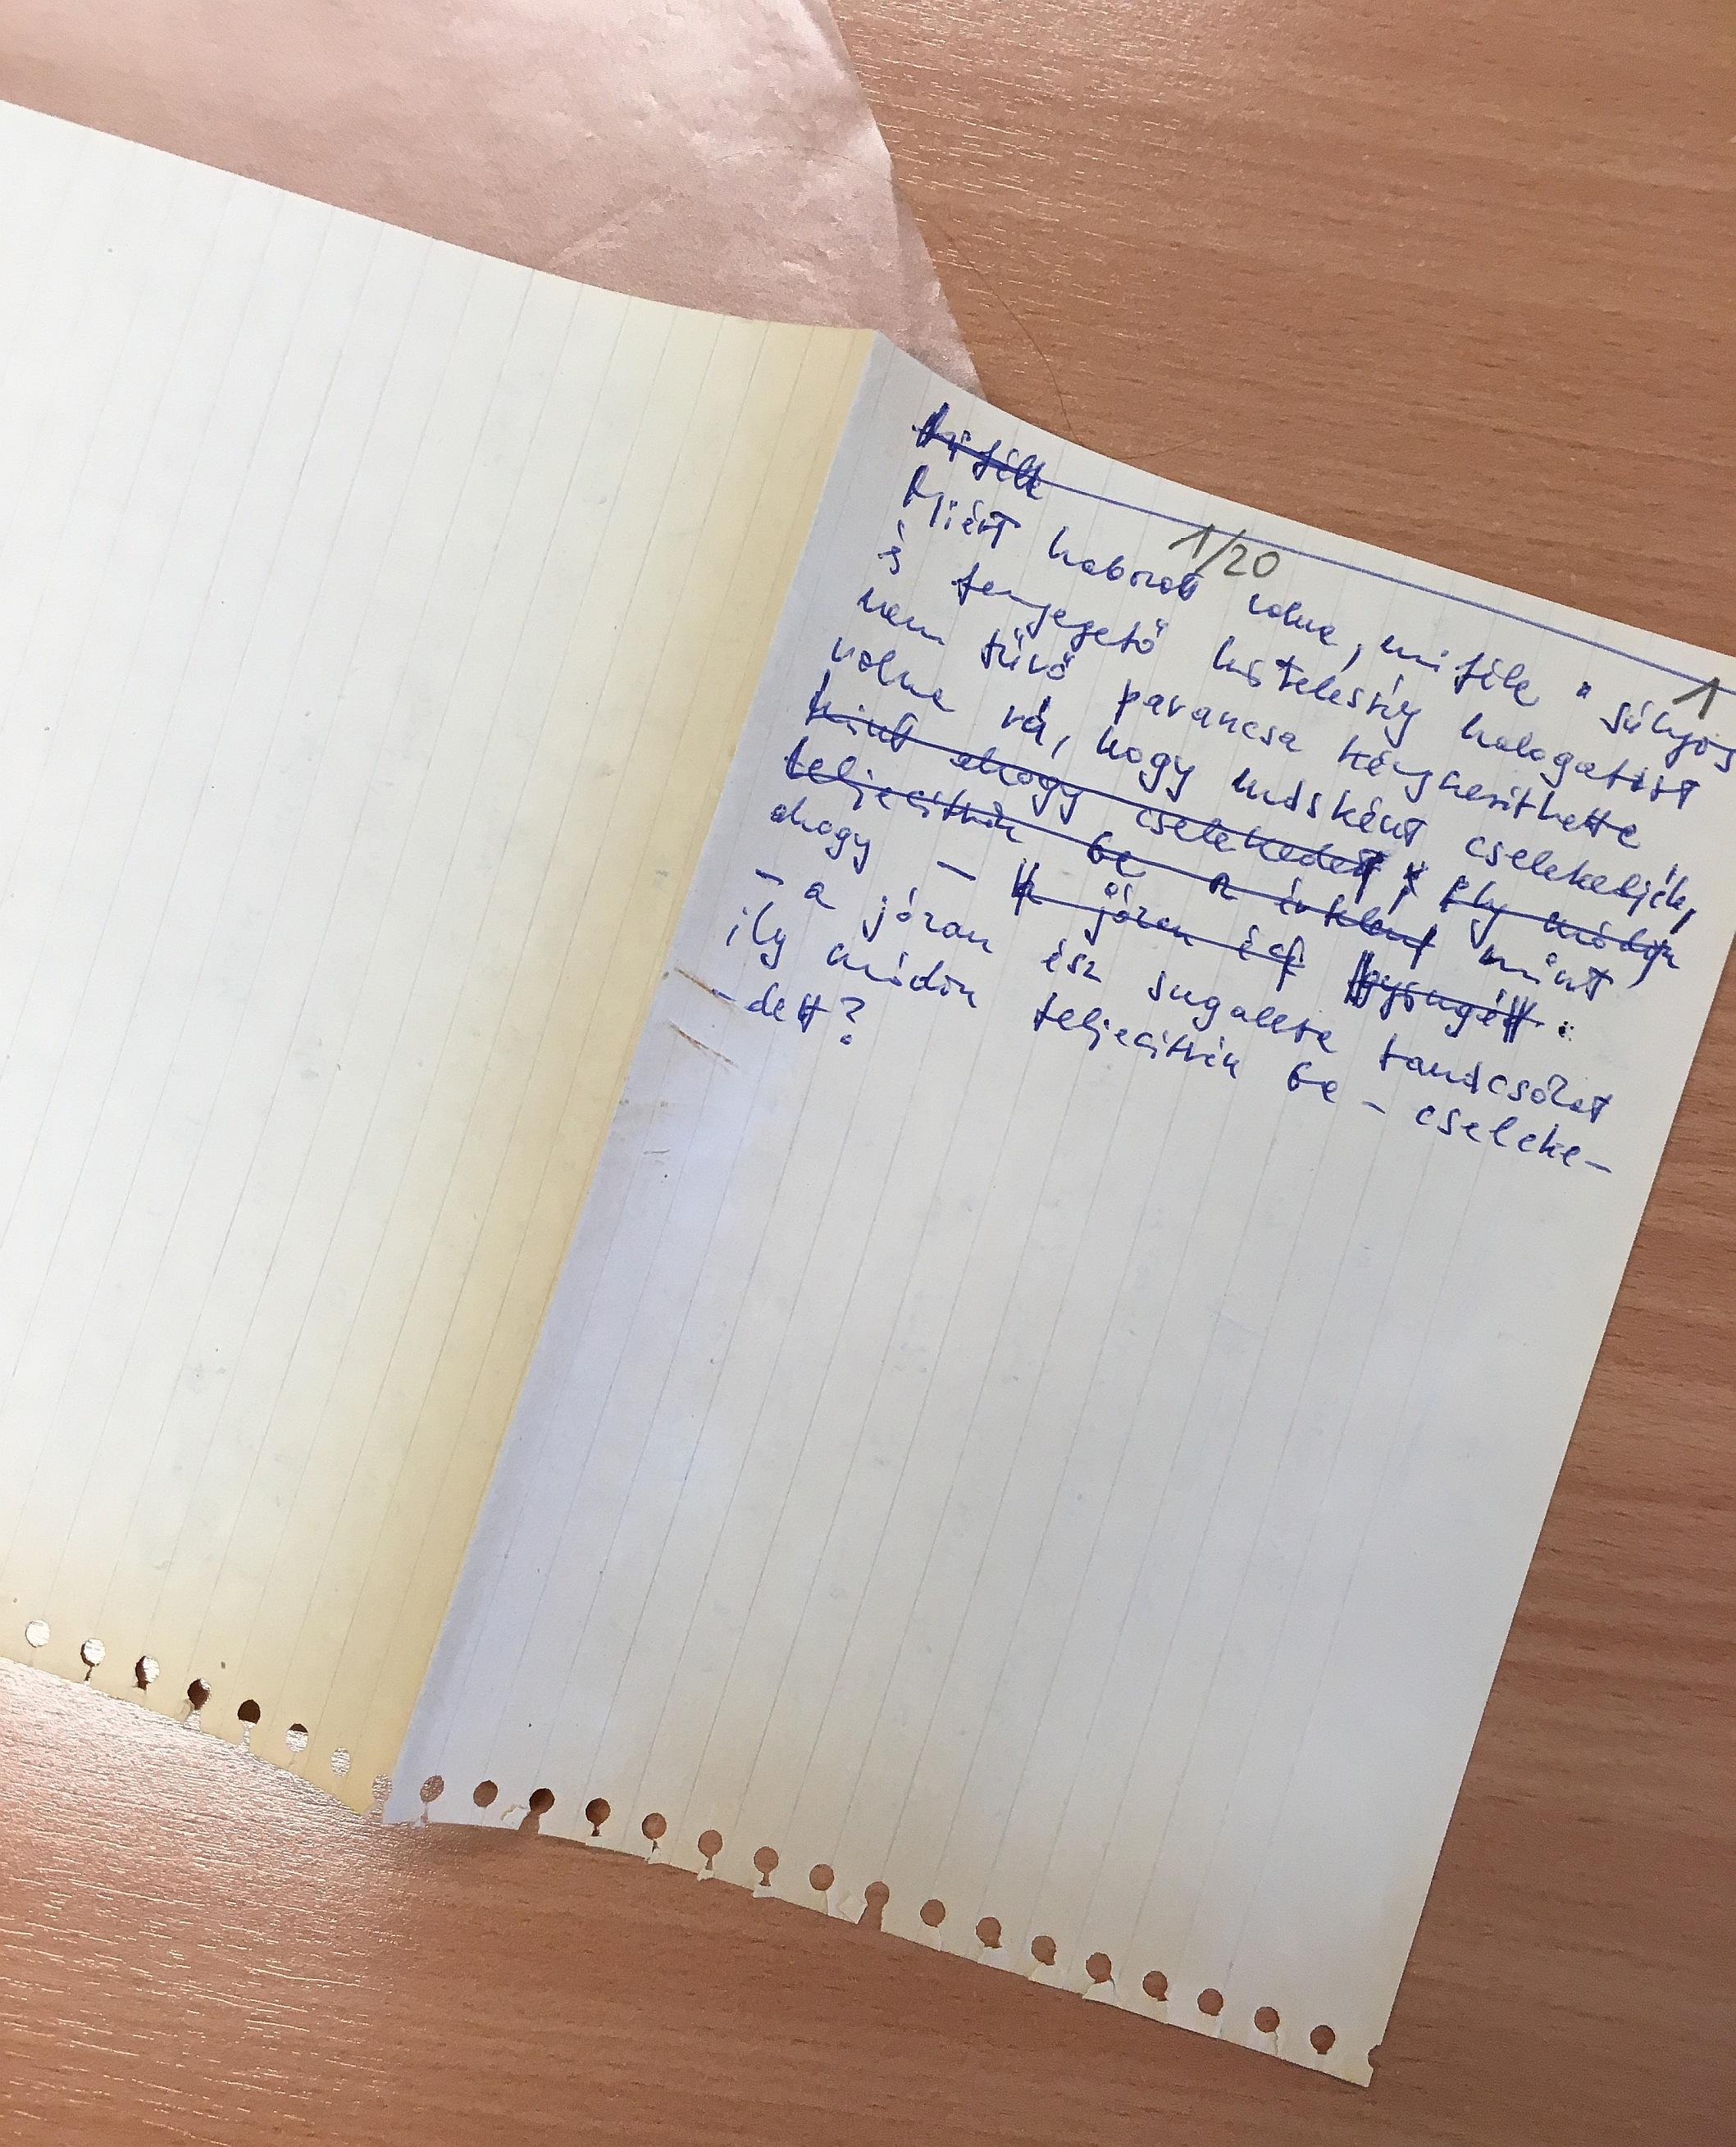 Mifélé
1/20
1
Miért habozott volna, miféle "súlyos
és fenyegető" kötelesség halogatást
nem tűrő parancsa kényszeríthette
volna rá, hogy másként cselekedjék,
mint ahogy cselekedett, ily módon
teljesítvén be a mint
ahogy – a józan ész :
– a józan ész sugallta tanácsot
ily módon teljesítvén be – cseleke-
-dett?